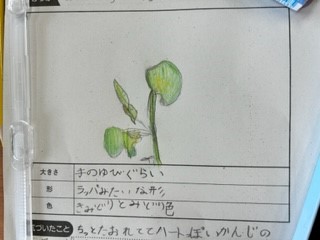 大きさ 手のゆびぐらい
形 ラッパみたいな形
色 きみどりとみどり色
気づいたこと ちょっとたおれてて ハートっぽいかんじの